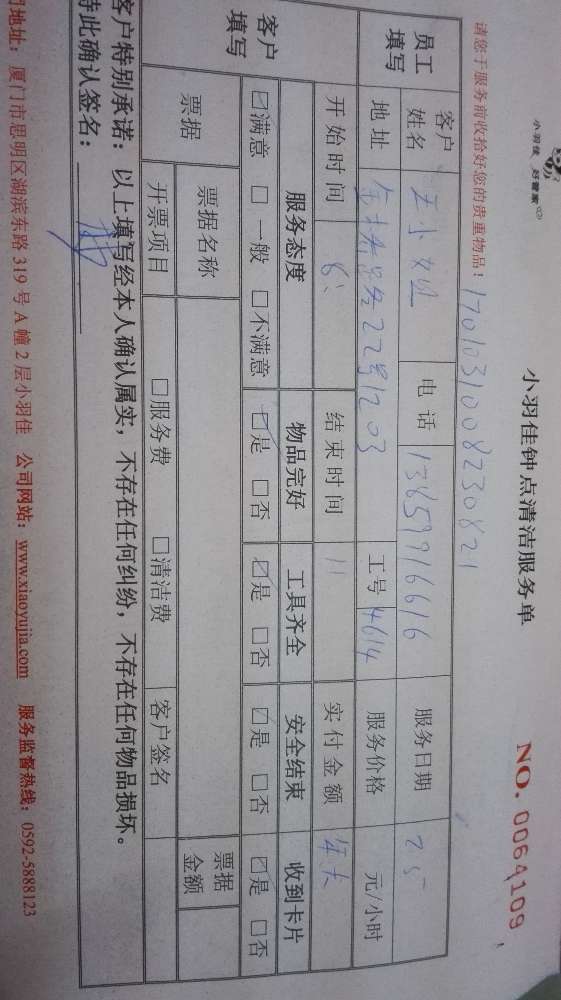 小羽佳 好管家
小羽佳钟点清洁服务单
NO. 0064109
请您于服务前收拾好您的贵重物品! 17010310082308​21
员工填写 客户姓名 王小姐 电话 13859916616 服务日期 25
地址 金榜路22号1203 工号 4614 服务价格 元/小时
客户填写 开始时间 8: 结束时间 11 实付金额 年卡
服务态度 物品完好 工具齐全 安全结束 收到卡片
☑满意 □一般 □不满意 ☑是 □否 ☑是 □否 ☑是 □否 ☑是 □否
票据 票据名称 票据金额
开票项目 □服务费 □清洁费 客户签名
客户特别承诺:以上填写经本人确认属实,不存在任何纠纷,不存在任何物品损坏。
特此确认签名:
门地址:厦门市思明区湖滨东路 319 号 A 幢 2 层小羽佳 公司网站:www.xiaoyujia.com 服务监督热线:0592-5888123